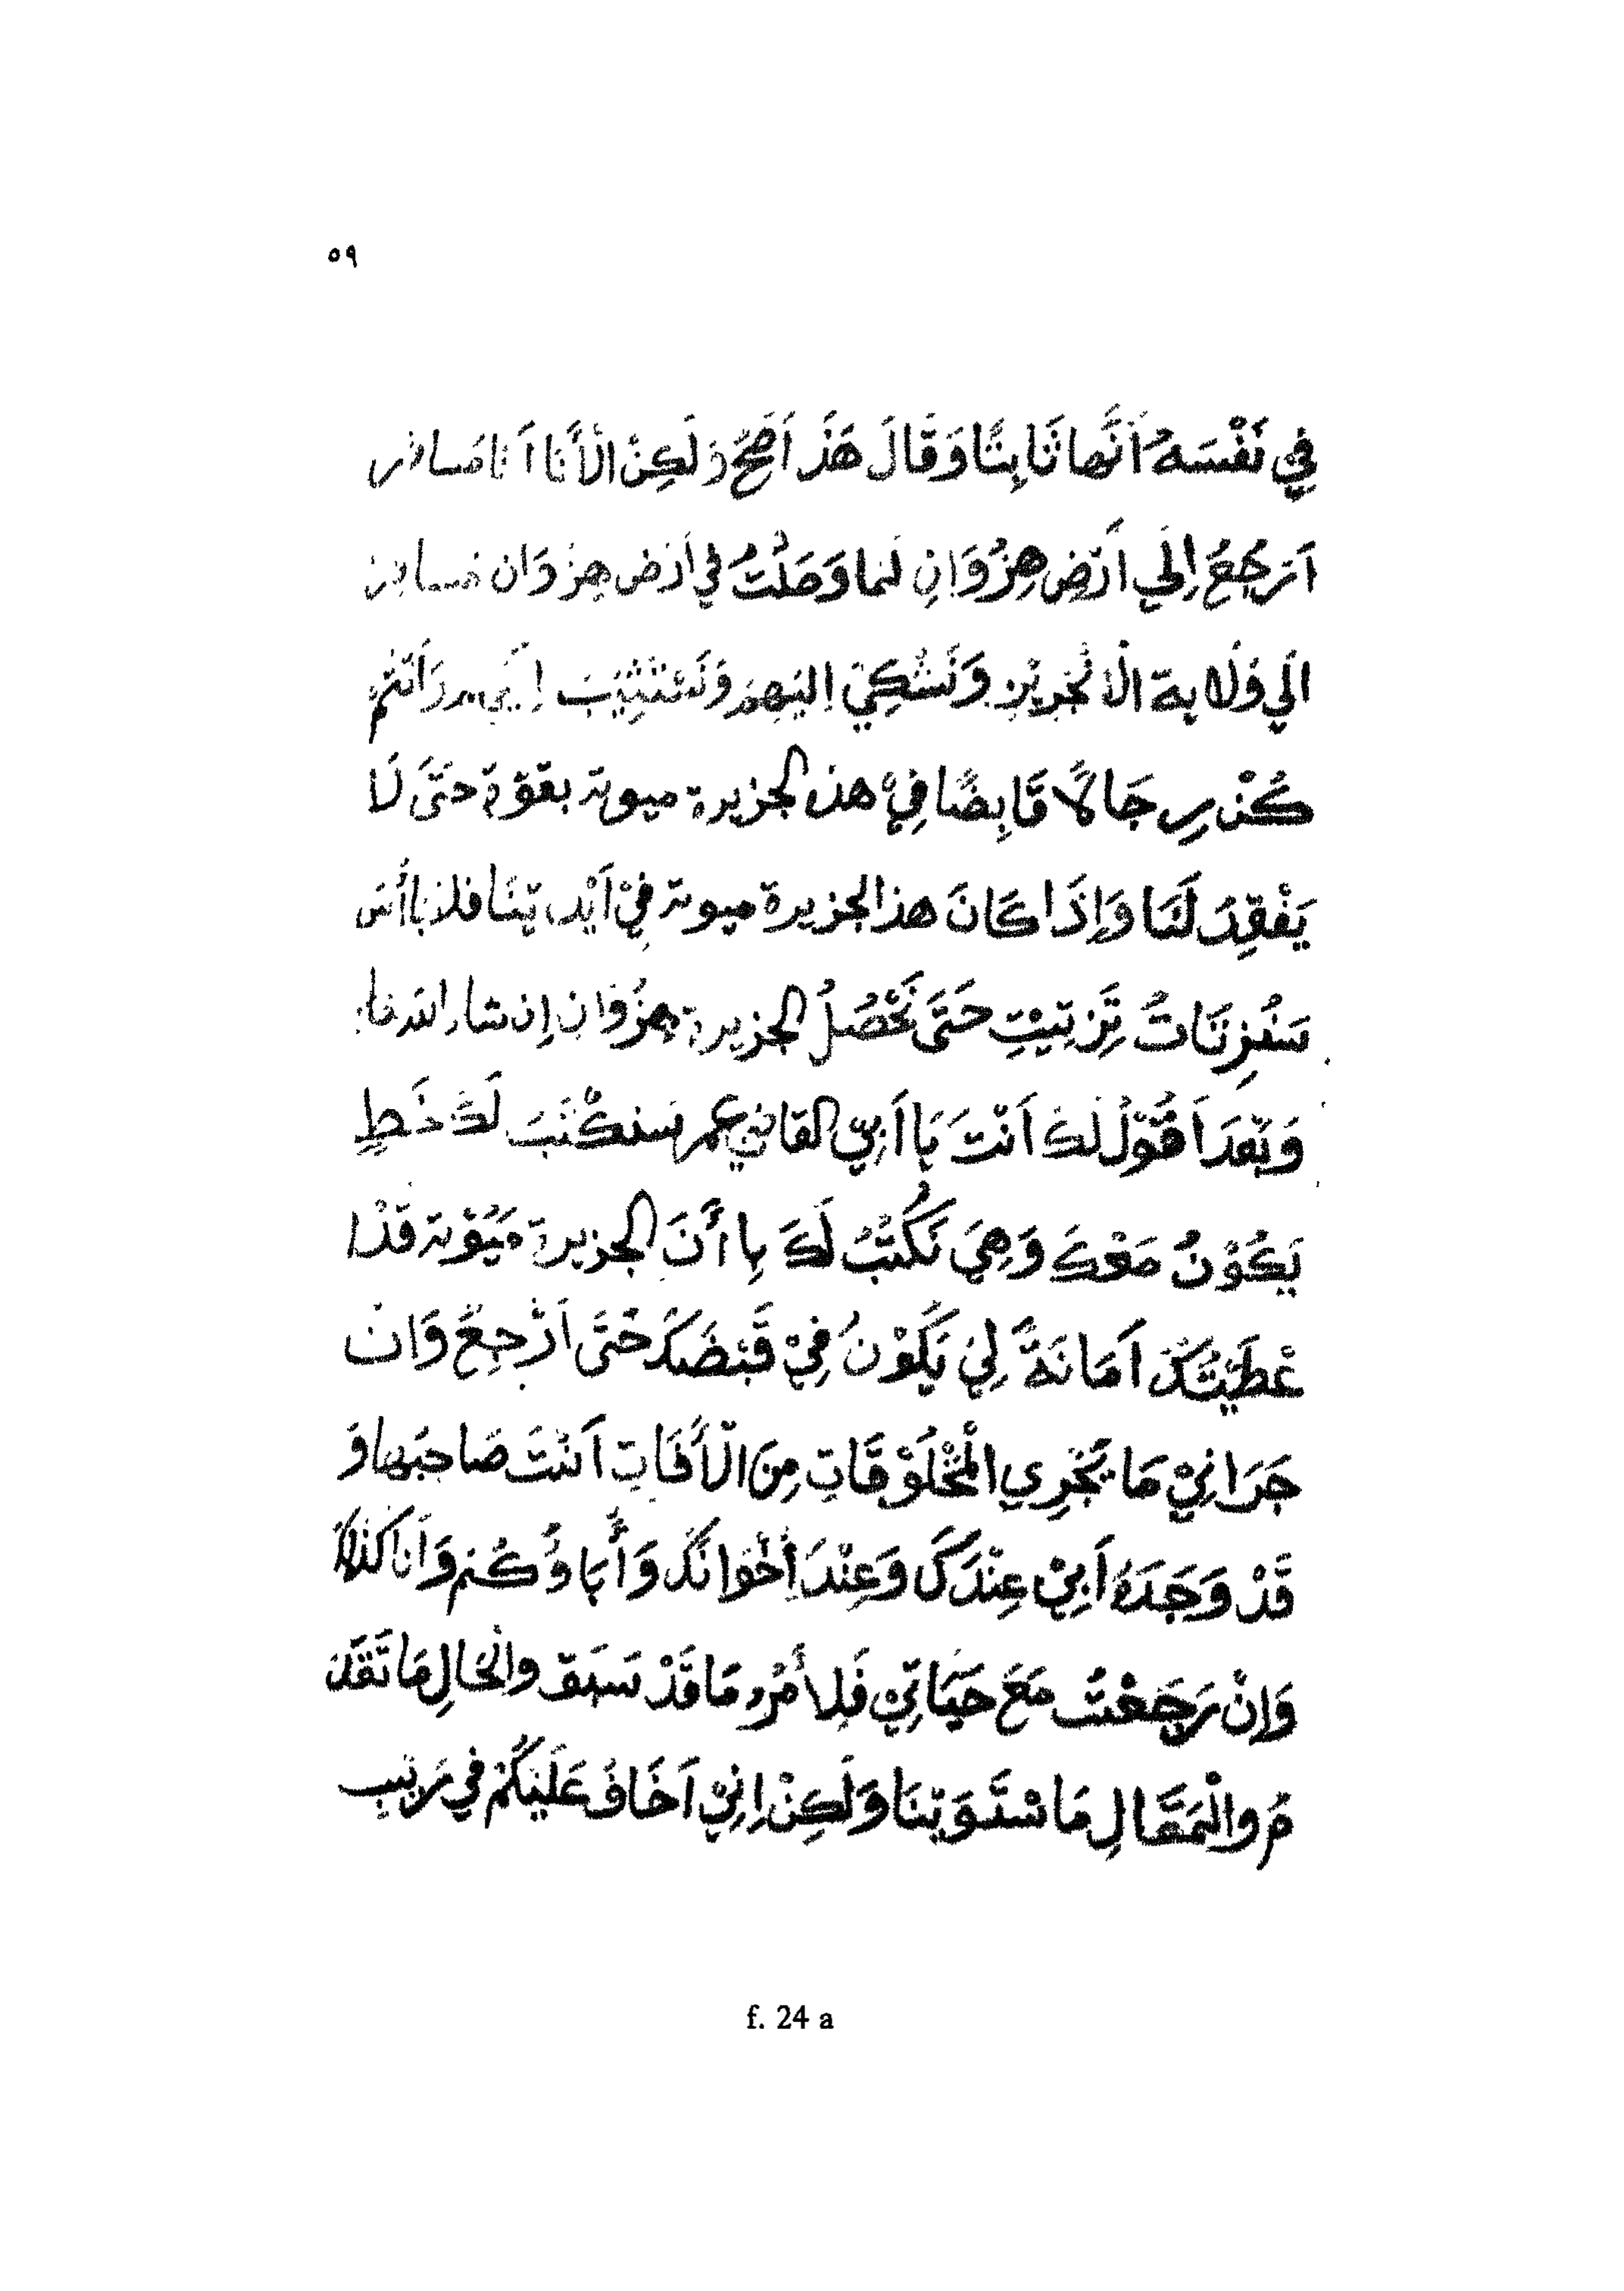 ٥٩
فِي نَفْسَهُ أَنَّهَا ثَابِتًا وَقَالَ هَذَ اَصَحُّ وَلَكِنْ الْأَنَا اَنَا مَسافر
اَرْجِعُ إِلَي اَرْضِ هِزُوَانِ لَما وَصَلْتُ فِي اَرْض هِزْوَان مسافر
الَي وَلَايةَ الْانْجَرِيْزِ وَنَشْكِيْ اِلَيْهِمْ وَاَنْتُمْ
كُنْ رِجَالًا قَابِضًا فِيْ هذ الجزيرة ميوتة بقوّة حَتَّى لَا
يَفْقِدَ لَنَا وَإِذَا كَانَ هذ الجزيرة ميوتة فِيْ اَيْدِيَنَا فلا بَاأْسَ
حَتَّى تَحْصُلُ الجزيرة هِزُوَان إِن شاء الله
وَبَعْدَ اَقُوْلُ لَكَ اَنْتَ يَا اَبِيْ القاضِي عمر سَنكْتُبَ لَكَ خَطٍ
يَكُوْنُ مَعْكَ وَهِيَ نَكْتُبُ لَكَ بِاأَنَّ الجزيرة مَيُوْتة قَدْ ا
عْطَيْتُكَ اَمَانَةً لِيْ يَكُوْنُ فِيْ قَبْضَكَ حَتَّى اَرْجِعَ وَانْ
جَرَانِيْ مَا يَجْرِي الْمَخْلُوْقَاتِ مِنَ الْأَفَاتِ اَنْتَ صَاحِبَها وَ
قَدْ وَجَدَهُ اَبِيْ عِنْدَكَ وَعِنْدَ أَخْوَانَكَ وَأَبَاؤُكُمْ وَاَنَا كَذَلِكَ
وَإِنْ رَجَعْتُ مَعَ حَيَاتِيْ فَلِأَمْرُ مَا قَدْ سَبَق والْحَالِ مَا تَقَدَّ
مُ والْمَقَالِ مَاسْتَوَيْنَا وَلَكِنْ اِنِيْ اَخَافُ عَلَيْكُمْ فِي رَيْبِ
f. 24 a